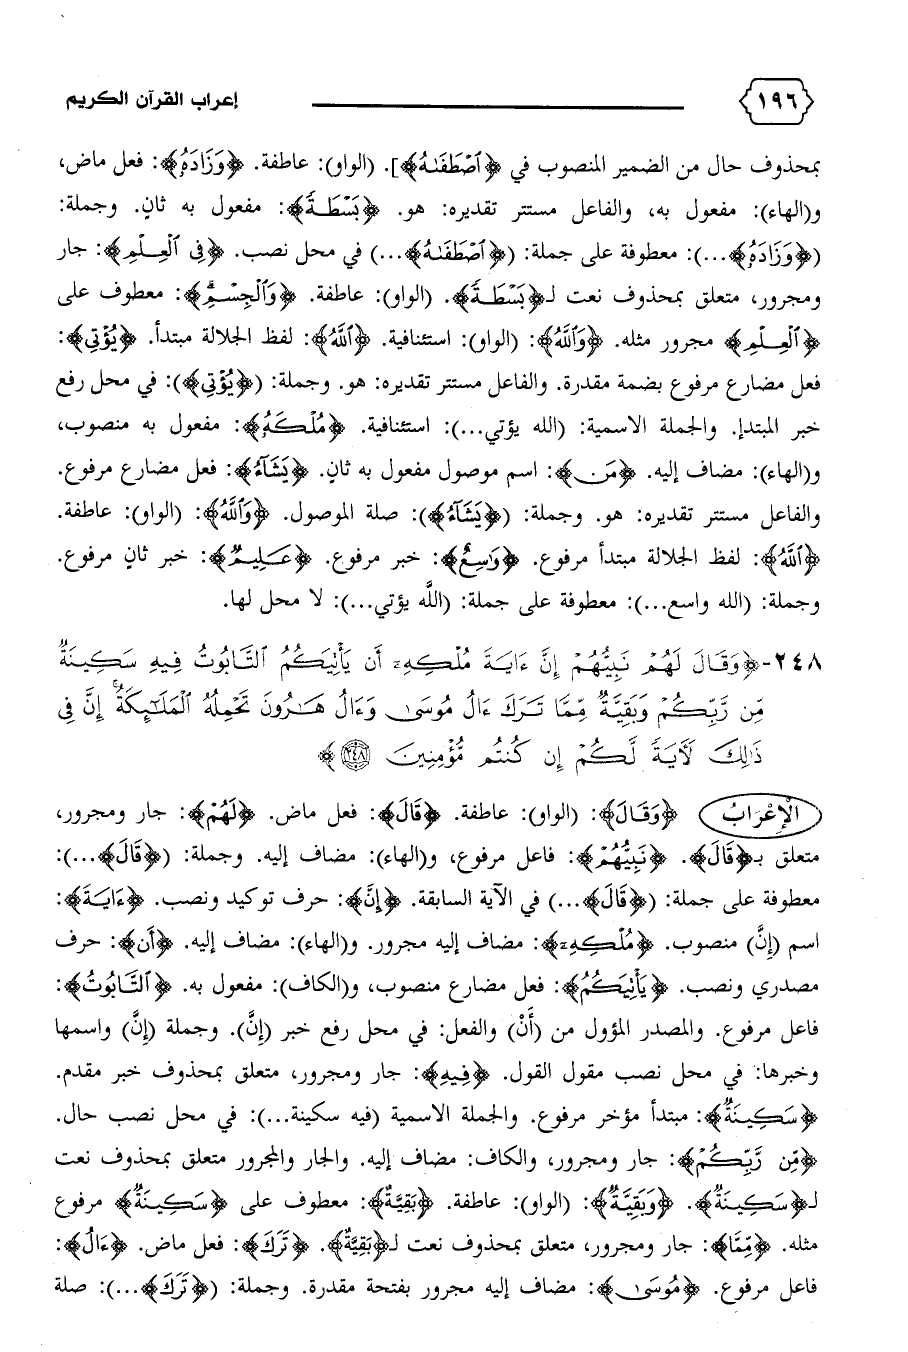 ١٩٦ إعراب القرآن الكريم
بمحذوف حال من الضمير المنصوب في ﴿ٱصْطَفَىٰهُ﴾]. (الواو): عاطفة. ﴿وَزَادَهُۥ﴾: فعل ماض،
و(الهاء): مفعول به، والفاعل مستتر تقديره: هو. ﴿بَسْطَةً﴾: مفعول به ثانٍ. وجملة:
(﴿وَزَادَهُۥ﴾...): معطوفة على جملة: (﴿ٱصْطَفَىٰهُ﴾...) في محل نصب. ﴿فِي ٱلْعِلْمِ﴾: جار
ومجرور، متعلق بمحذوف نعت لـ﴿بَسْطَةً﴾. (الواو): عاطفة. ﴿وَٱلْجِسْمِ﴾: معطوف على
﴿ٱلْعِلْمِ﴾ مجرور مثله. ﴿وَٱللَّهُ﴾: (الواو): استئنافية. ﴿ٱللَّهُ﴾: لفظ الجلالة مبتدأ. ﴿يُؤْتِي﴾:
فعل مضارع مرفوع بضمة مقدرة. والفاعل مستتر تقديره: هو. وجملة: (﴿يُؤْتِي﴾): في محل رفع
خبر المبتدإ. والجملة الاسمية: (الله يؤتي...): استئنافية. ﴿مُلْكَهُۥ﴾: مفعول به منصوب،
و(الهاء): مضاف إليه. ﴿مَن﴾: اسم موصول مفعول به ثانٍ. ﴿يَشَآءُ﴾: فعل مضارع مرفوع.
والفاعل مستتر تقديره: هو. وجملة: (﴿يَشَآءُ﴾): صلة الموصول. ﴿وَٱللَّهُ﴾: (الواو): عاطفة.
﴿ٱللَّهُ﴾: لفظ الجلالة مبتدأ مرفوع. ﴿وَٰسِعٌ﴾: خبر مرفوع. ﴿عَلِيمٌ﴾: خبر ثانٍ مرفوع.
وجملة: (الله واسع...): معطوفة على جملة: (اللَّه يؤتي...): لا محل لها.
٢٤٨-﴿وَقَالَ لَهُمْ نَبِيُّهُمْ إِنَّ ءَايَةَ مُلْكِهِۦٓ أَن يَأْتِيَكُمُ ٱلتَّابُوتُ فِيهِ سَكِينَةٌ
مِّن رَّبِّكُمْ وَبَقِيَّةٌ مِّمَّا تَرَكَ ءَالُ مُوسَىٰ وَءَالُ هَٰرُونَ تَحْمِلُهُ ٱلْمَلَٰٓئِكَةُ ۚ إِنَّ فِى
ذَٰلِكَ لَـَٔايَةً لَّكُمْ إِن كُنتُم مُّؤْمِنِينَ ٢٤٨﴾
الإِعْرَابُ ﴿وَقَالَ﴾: (الواو): عاطفة. ﴿قَالَ﴾: فعل ماض. ﴿لَهُمْ﴾: جار ومجرور،
متعلق بـ﴿قَالَ﴾. ﴿نَبِيُّهُمْ﴾: فاعل مرفوع، و(الهاء): مضاف إليه. وجملة: (﴿قَالَ﴾...):
معطوفة على جملة: (﴿قَالَ﴾...) في الآية السابقة. ﴿إِنَّ﴾: حرف توكيد ونصب. ﴿ءَايَةَ﴾:
اسم (إنَّ) منصوب. ﴿مُلْكِهِۦٓ﴾: مضاف إليه مجرور. و(الهاء): مضاف إليه. ﴿أَن﴾: حرف
مصدري ونصب. ﴿يَأْتِيَكُمُ﴾: فعل مضارع منصوب، و(الكاف): مفعول به. ﴿ٱلتَّابُوتُ﴾:
فاعل مرفوع. والمصدر المؤول من (أَنْ) والفعل: في محل رفع خبر (إنَّ). وجملة (إنَّ) واسمها
وخبرها: في محل نصب مقول القول. ﴿فِيهِ﴾: جار ومجرور، متعلق بمحذوف خبر مقدم.
﴿سَكِينَةٌ﴾: مبتدأ مؤخر مرفوع. والجملة الاسمية (فيه سكينة...): في محل نصب حال.
﴿مِّن رَّبِّكُمْ﴾: جار ومجرور، والكاف: مضاف إليه. والجار والمجرور متعلق بمحذوف نعت
لـ﴿سَكِينَةٌ﴾. ﴿وَبَقِيَّةٌ﴾: (الواو): عاطفة. ﴿بَقِيَّةٌ﴾: معطوف على ﴿سَكِينَةٌ﴾ مرفوع
مثله. ﴿مِّمَّا﴾: جار ومجرور، متعلق بمحذوف نعت لـ﴿بَقِيَّةٌ﴾. ﴿تَرَكَ﴾: فعل ماض. ﴿ءَالُ﴾:
فاعل مرفوع. ﴿مُوسَىٰ﴾: مضاف إليه مجرور بفتحة مقدرة. وجملة: (﴿تَرَكَ﴾...): صلة